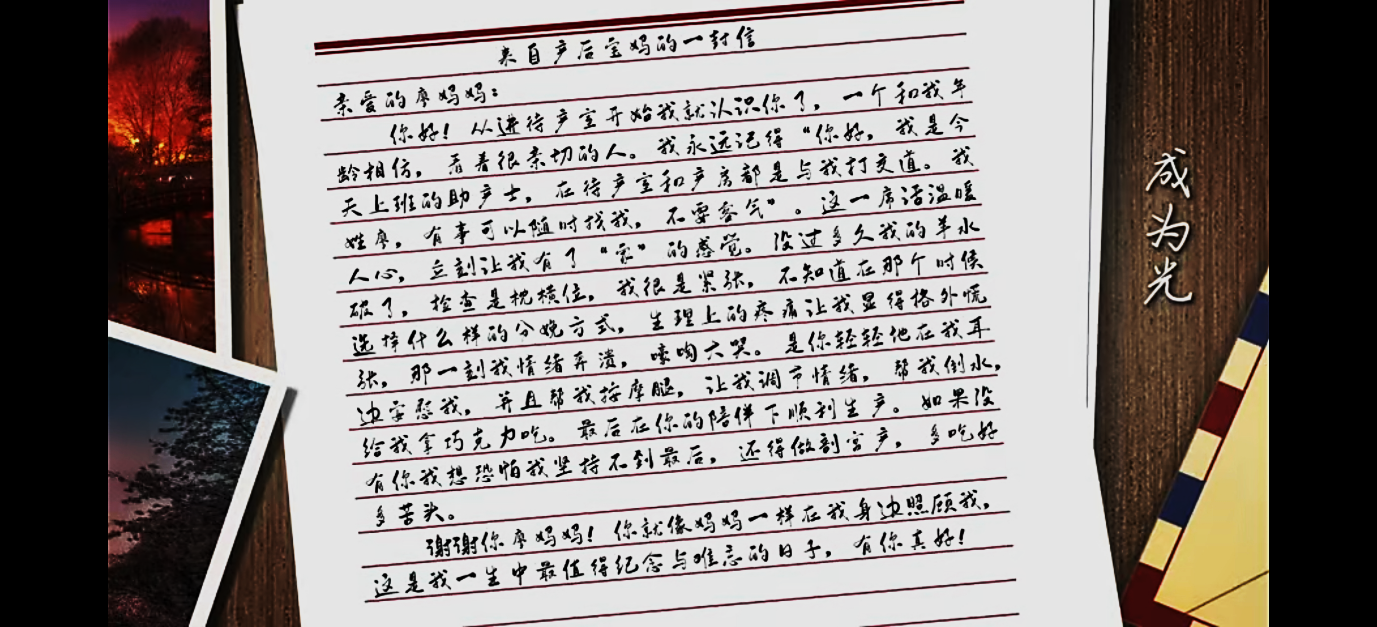 来自产后宝妈的一封信
亲爱的廖妈妈：
你好！从进待产室开始我就认识你了，一个和我年
龄相仿，看着很亲切的人。我永远记得“你好，我是今
天上班的助产士，在待产室和产房都是与我打交道。我
姓廖，有事可以随时找我，不要客气”。这一席话温暖
人心，立刻让我有了“家”的感觉。没过多久我的羊水
破了，检查是枕横位，我很是紧张，不知道在那个时候
选择什么样的分娩方式，生理上的疼痛让我显得格外慌
张，那一刻我情绪奔溃，嚎啕大哭。是你轻轻他在我耳
边安慰我，并且帮我按摩腿，让我调节情绪，帮我倒水，
给我拿巧克力吃。最后在你的陪伴下顺利生产。如果没
有你我想恐怕我坚持不到最后，还得做剖宫产，多吃好
多苦头。
谢谢你廖妈妈！你就像妈妈一样在我身边照顾我，
这是我一生中最值得纪念与难忘的日子，有你真好！
成为光